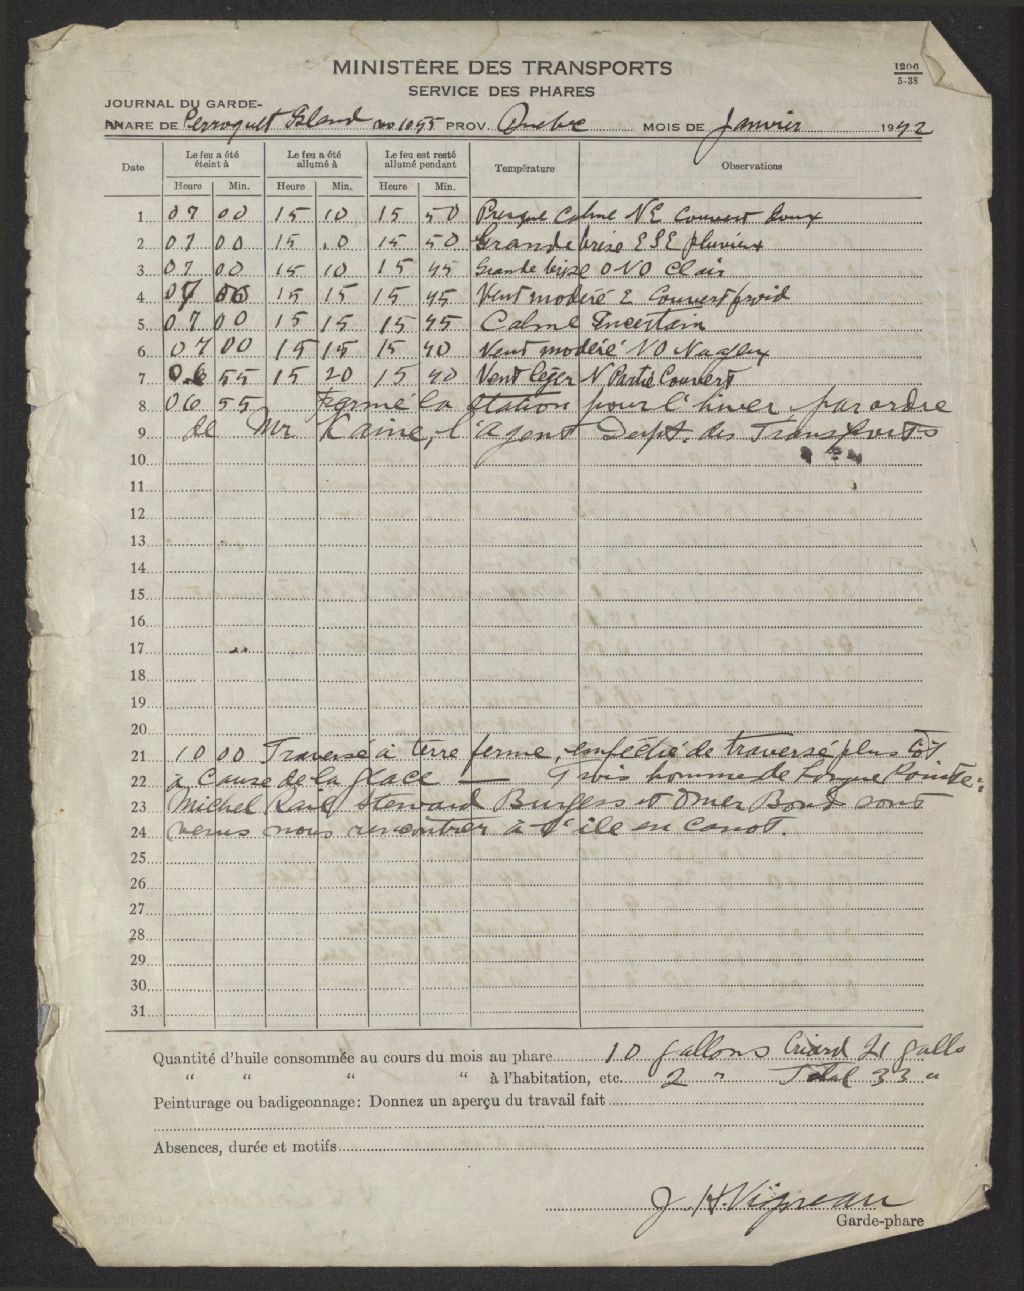 MINISTÈRE DES TRANSPORTS
SERVICE DES PHARES
1206
5-38
JOURNAL DU GARDE-
PHARE DE Perroquet Island no 1055 PROV. Quebec MOIS DE Janvier 1942
Date Le feu a été éteint à Le feu a été allumé à Le feu est resté allumé pendant Température Observations
Heure Min. Heure Min. Heure Min.
1 07 00 15 10 15 50 Presque Calme NE Couvert doux
2 07 00 15 .0 15 50 Grande brise ESE pluvieux
3 07 00 15 10 15 45 Grande brise ONO Clair
4 07 00 15 15 15 45 Vent modéré E Couvert froid
5 07 00 15 15 15 45 Calme Incertain
6 07 00 15 15 15 40 Vent modéré NO Nuageux
7 06 55 15 20 15 40 Vent léger N Partie Couvert
8 06 55 Fermé la station pour l'hiver, par ordre
9 de Mr Kaine, l'agent Dept. des Transports
10
11
12
13
14
15
16
17
18
19
20
21 10 00 Traversé à terre ferme, empéché de traversé plus tôt
22 à Cause de la glace — Trois homme de Longue Pointe:
23 Michel Steward Burgess et Omer Bond sont
24 venus nous rencontrer à l'ile en canot.
25
26
27
28
29
30
31
Quantité d'huile consommée au cours du mois au phare 10 gallons Criard 21 galls
" " " " à l'habitation, etc. 2 " Total 33 "
Peinturage ou badigeonnage: Donnez un aperçu du travail fait
Absences, durée et motifs
J. H. Vigneau
Garde-phare